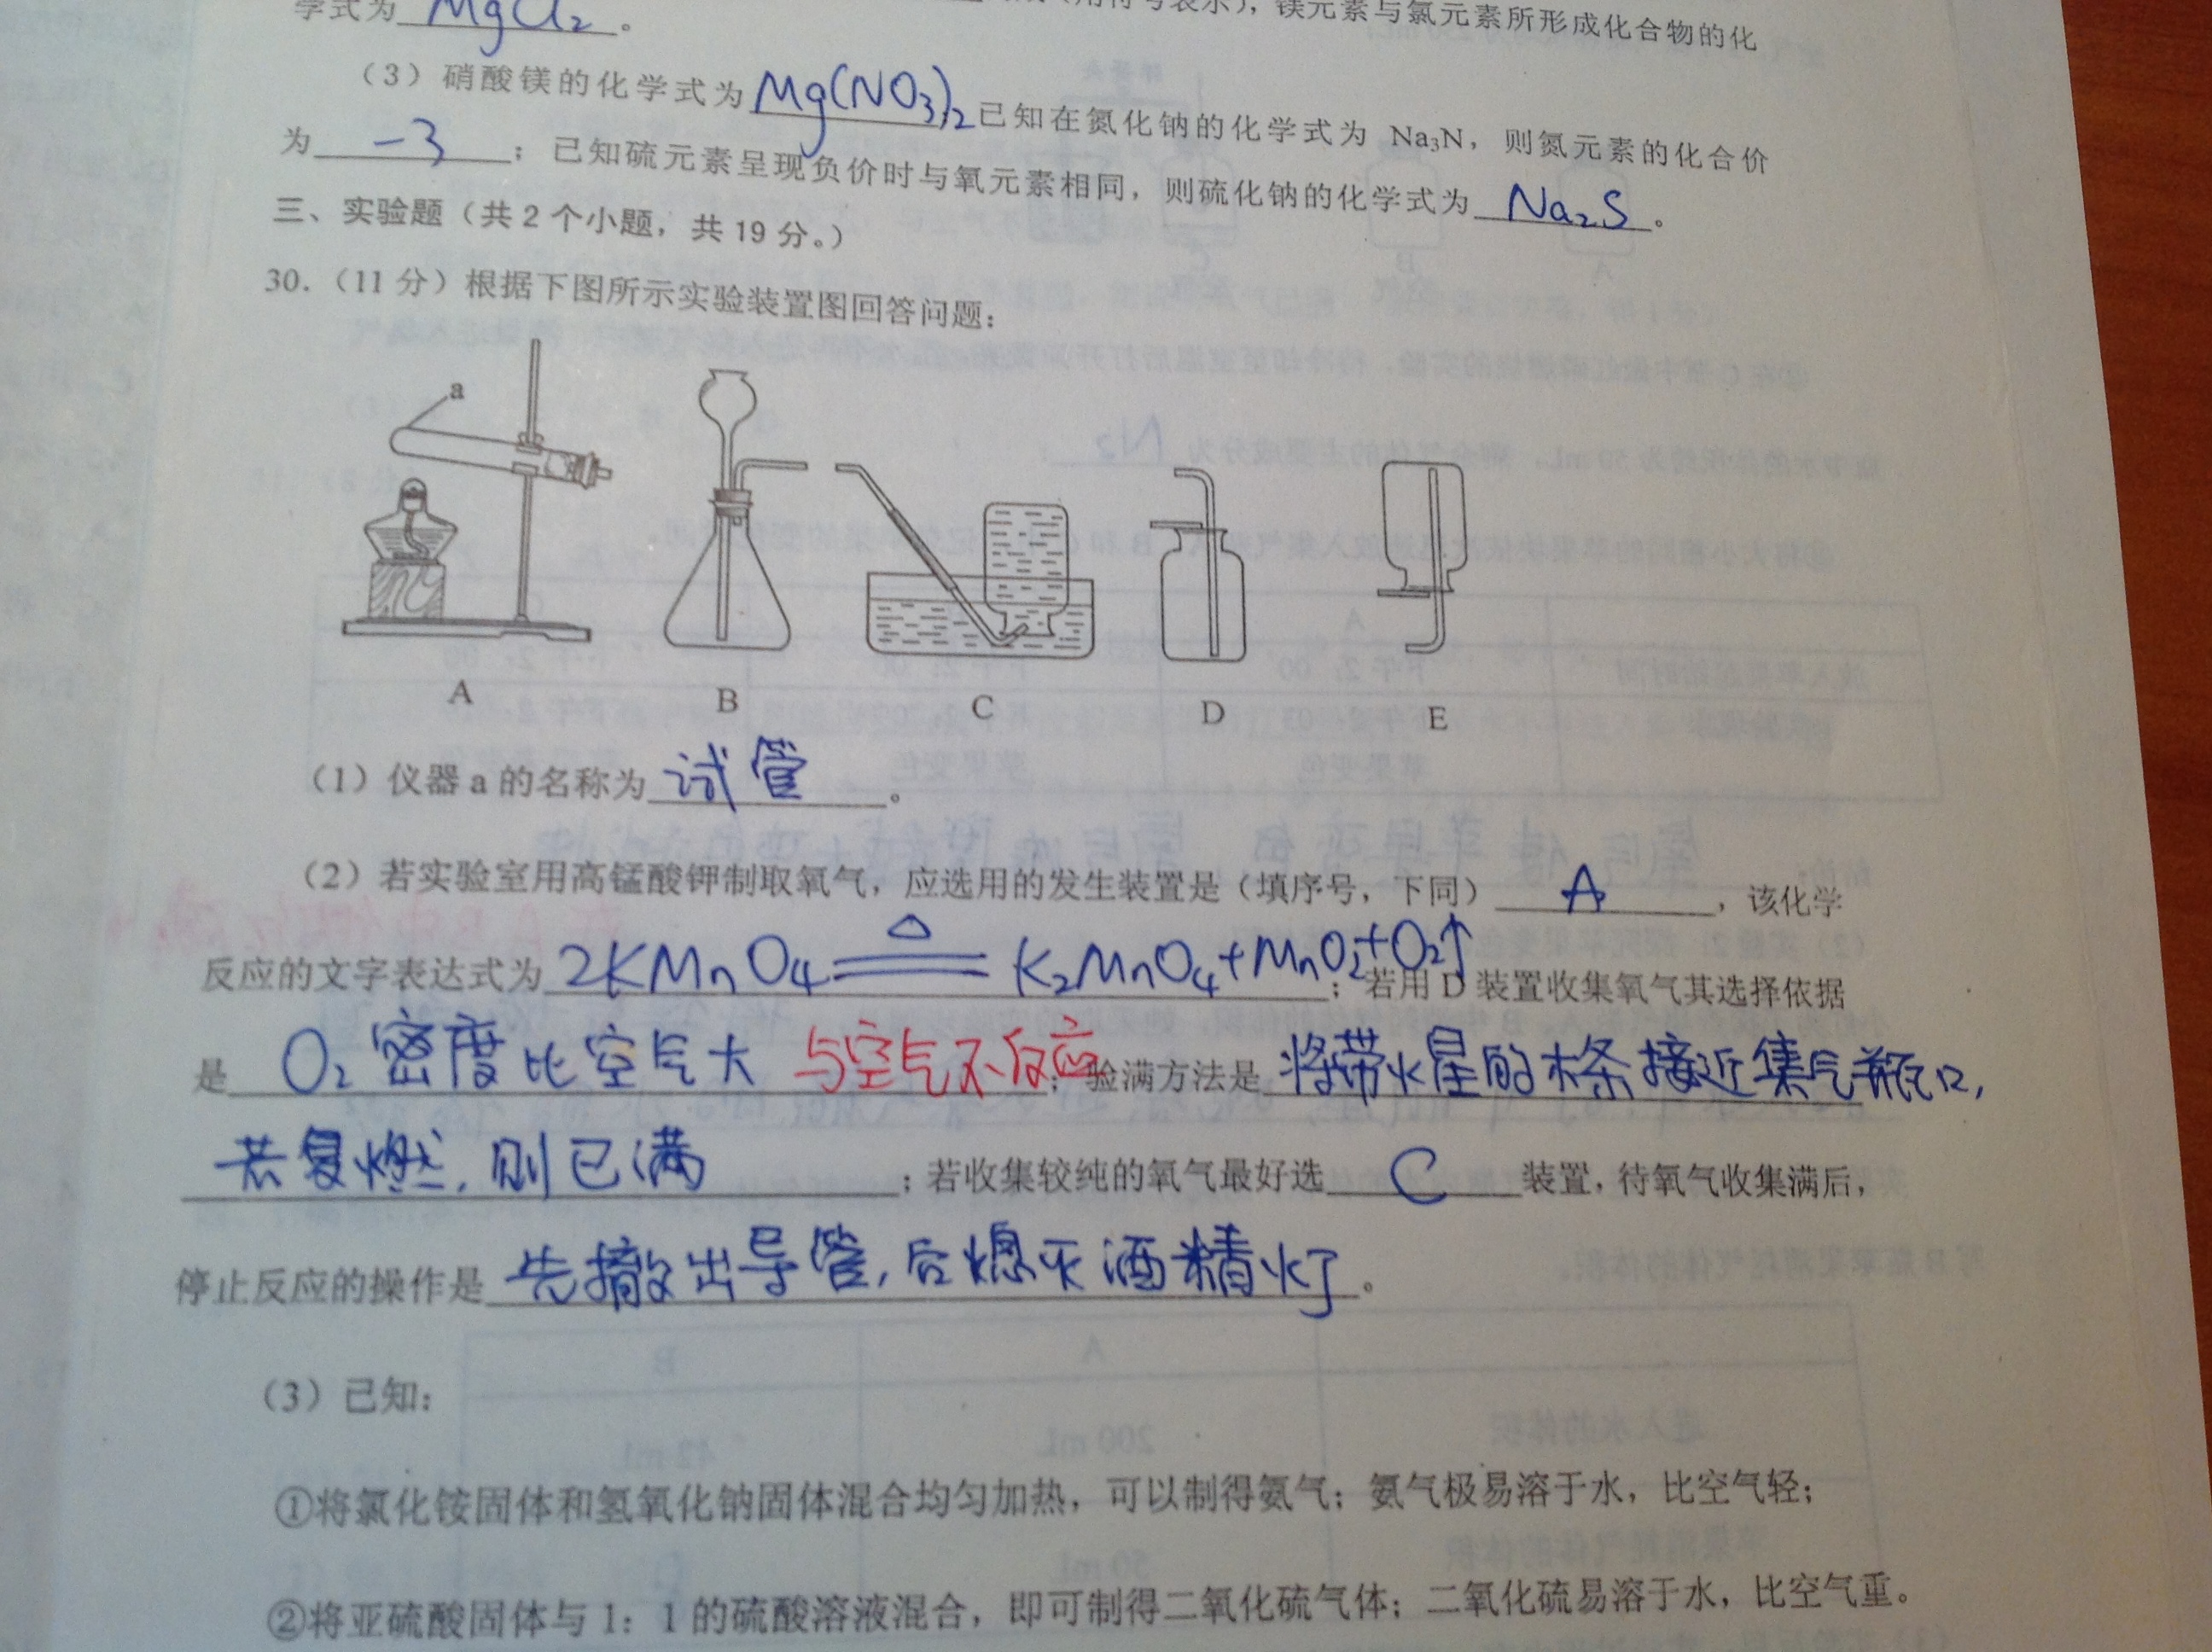 学式为 MgCl₂ 。
(用符号表示), 镁元素与氯元素所形成化合物的化
（3）硝酸镁的化学式为 Mg(NO₃)₂ 已知在氮化钠的化学式为 Na₃N，则氮元素的化合价
为 -3 ；已知硫元素呈现负价时与氧元素相同，则硫化钠的化学式为 Na₂S 。
三、实验题（共 2 个小题，共 19 分。）
30.（11 分）根据下图所示实验装置图回答问题：
a
A B C D E
（1）仪器 a 的名称为 试管 。
（2）若实验室用高锰酸钾制取氧气，应选用的发生装置是（填序号，下同） A ，该化学
反应的文字表达式为 2KMnO₄ ≜ K₂MnO₄+MnO₂+O₂↑ ；若用 D 装置收集氧气其选择依据
是 O₂ 密度比空气大 与空气不反应 ；验满方法是 将带火星的木条接近集气瓶口，
若复燃，则已满 ；若收集较纯的氧气最好选 C 装置，待氧气收集满后，
停止反应的操作是 先撤出导管，后熄灭酒精灯 。
（3）已知：
①将氯化铵固体和氢氧化钠固体混合均匀加热，可以制得氨气；氨气极易溶于水，比空气轻；
②将亚硫酸固体与 1：1 的硫酸溶液混合，即可制得二氧化硫气体；二氧化硫易溶于水，比空气重。